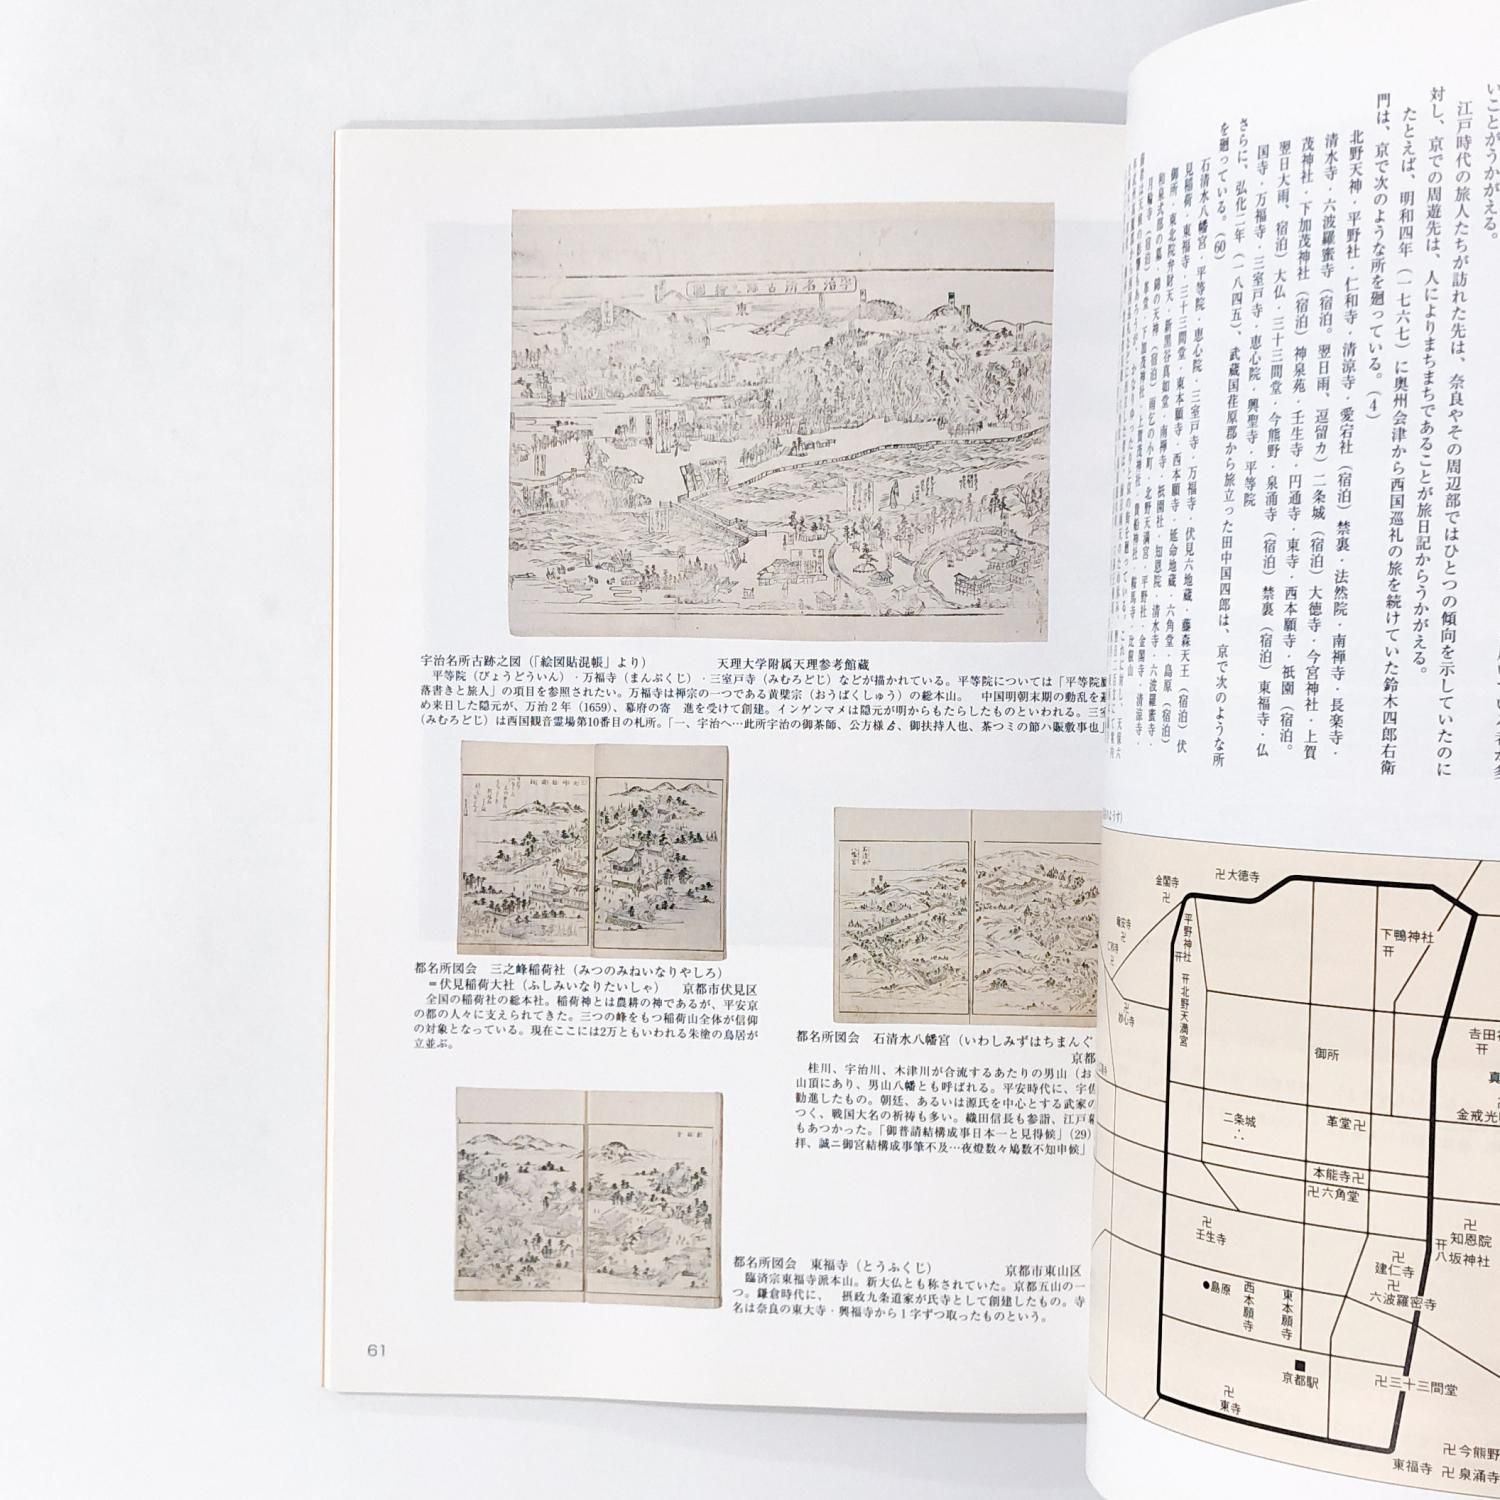 いことがうかがえる。
江戸時代の旅人たちが訪れた先は、奈良やその周辺部ではひとつの傾向を示していたのに
対し、京での周遊先は、人によりまちまちであることが旅日記からうかがえる。
たとえば、明和四年(一七六七)に奥州会津から西国巡礼の旅を続けていた鈴木四郎右衛
門は、京で次のような所を廻っている。(4)
北野天神・平野社・仁和寺・清涼寺・愛宕社(宿泊)禁裏・法然院・南禅寺・長楽寺・
清水寺・六波羅蜜寺(宿泊。翌日雨、逗留カ)二条城(宿泊)大徳寺・今宮神社・上賀
茂神社・下加茂神社(宿泊)神泉苑・壬生寺・円通寺・東寺・西本願寺・祇園(宿泊。
翌日大雨、宿泊)大仏・三十三間堂・今熊野・泉涌寺(宿泊)禁裏(宿泊)東福寺・仏
国寺・万福寺・三室戸寺・恵心院・興聖寺・平等院
さらに、弘化二年(一八四五)、武蔵国荏原郡から旅立った田中国四郎は、京で次のような所
を廻っている。(60)
石清水八幡宮・平等院・恵心院・三室戸寺・万福寺・伏見六地蔵・藤森天王(宿泊)伏
見稲荷・東福寺・三十三間堂・東本願寺・西本願寺・延命地蔵・六角堂・島原(宿泊)
御所・東北院弁財天・新黒谷真如堂・南禅寺・祇園社・知恩院・清水寺・六波羅蜜寺・
和泉式部の墓・錦の天神(宿泊)雨乞の小町・北野天満宮・平野社・金閣寺・
宇治名所古跡之図(「絵図貼混帳」より) 天理大学附属天理参考館蔵
平等院(びょうどういん)・万福寺(まんぷくじ)・三室戸寺(みむろどじ)などが描かれている。平等院については「平等院
落書きと旅人」の項目を参照されたい。万福寺は禅宗の一つである黄檗宗(おうばくしゅう)の総本山。 中国明朝末期の動乱を
め来日した隠元が、万治2年(1659)、幕府の寄 進を受けて創建。インゲンマメは隠元が明からもたらしたものといわれる。三
(みむろどじ)は西国観音霊場第10番目の札所。「一、宇治へ…此所宇治の御茶師、公方様ゟ、御扶持人也、茶つミの節ハ賑敷事也」
都名所図会 三之峰稲荷社(みつのみねいなりやしろ)
=伏見稲荷大社(ふしみいなりたいしゃ) 京都市伏見区
全国の稲荷社の総本社。稲荷神とは農耕の神であるが、平安京
の都の人々に支えられてきた。三つの峰をもつ稲荷山全体が信仰
の対象となっている。現在ここには2万ともいわれる朱塗の鳥居が
立並ぶ。
石清水
八幡宮
都名所図会 石清水八幡宮(いわしみずはちまんぐ
京都
桂川、宇治川、木津川が合流するあたりの男山(お
山頂にあり、男山八幡とも呼ばれる。平安時代に、宇佐
勧進したもの。朝廷、あるいは源氏を中心とする武家の
つく、戦国大名の祈祷も多い。織田信長も参詣、江戸幕
もあつかった。「御普請結構成事日本一と見得候」(29)
拝、誠ニ御宮結構成事筆不及…夜燈数々鳩数不知申候」
都名所図会 東福寺(とうふくじ) 京都市東山区
臨済宗東福寺派本山。新大仏とも称されていた。京都五山の一
つ。鎌倉時代に、 摂政九条道家が氏寺として創建したもの。寺
名は奈良の東大寺・興福寺から1字ずつ取ったものという。
61
金閣寺
卍
卍大徳寺
龍安寺
卍
仁和寺
卍
平野神社
北野天満宮
卍
妙心寺
下鴨神社
御所
吉田神
二条城
革堂卍
金戒光
本能寺卍
卍六角堂
卍
壬生寺
卍
知恩院
八坂神社
卍
建仁寺
卍
六波羅密寺
●島原
西本願寺
東本願寺
■
京都駅
卍三十三間堂
卍
東寺
卍今熊野
東福寺
卍泉涌寺